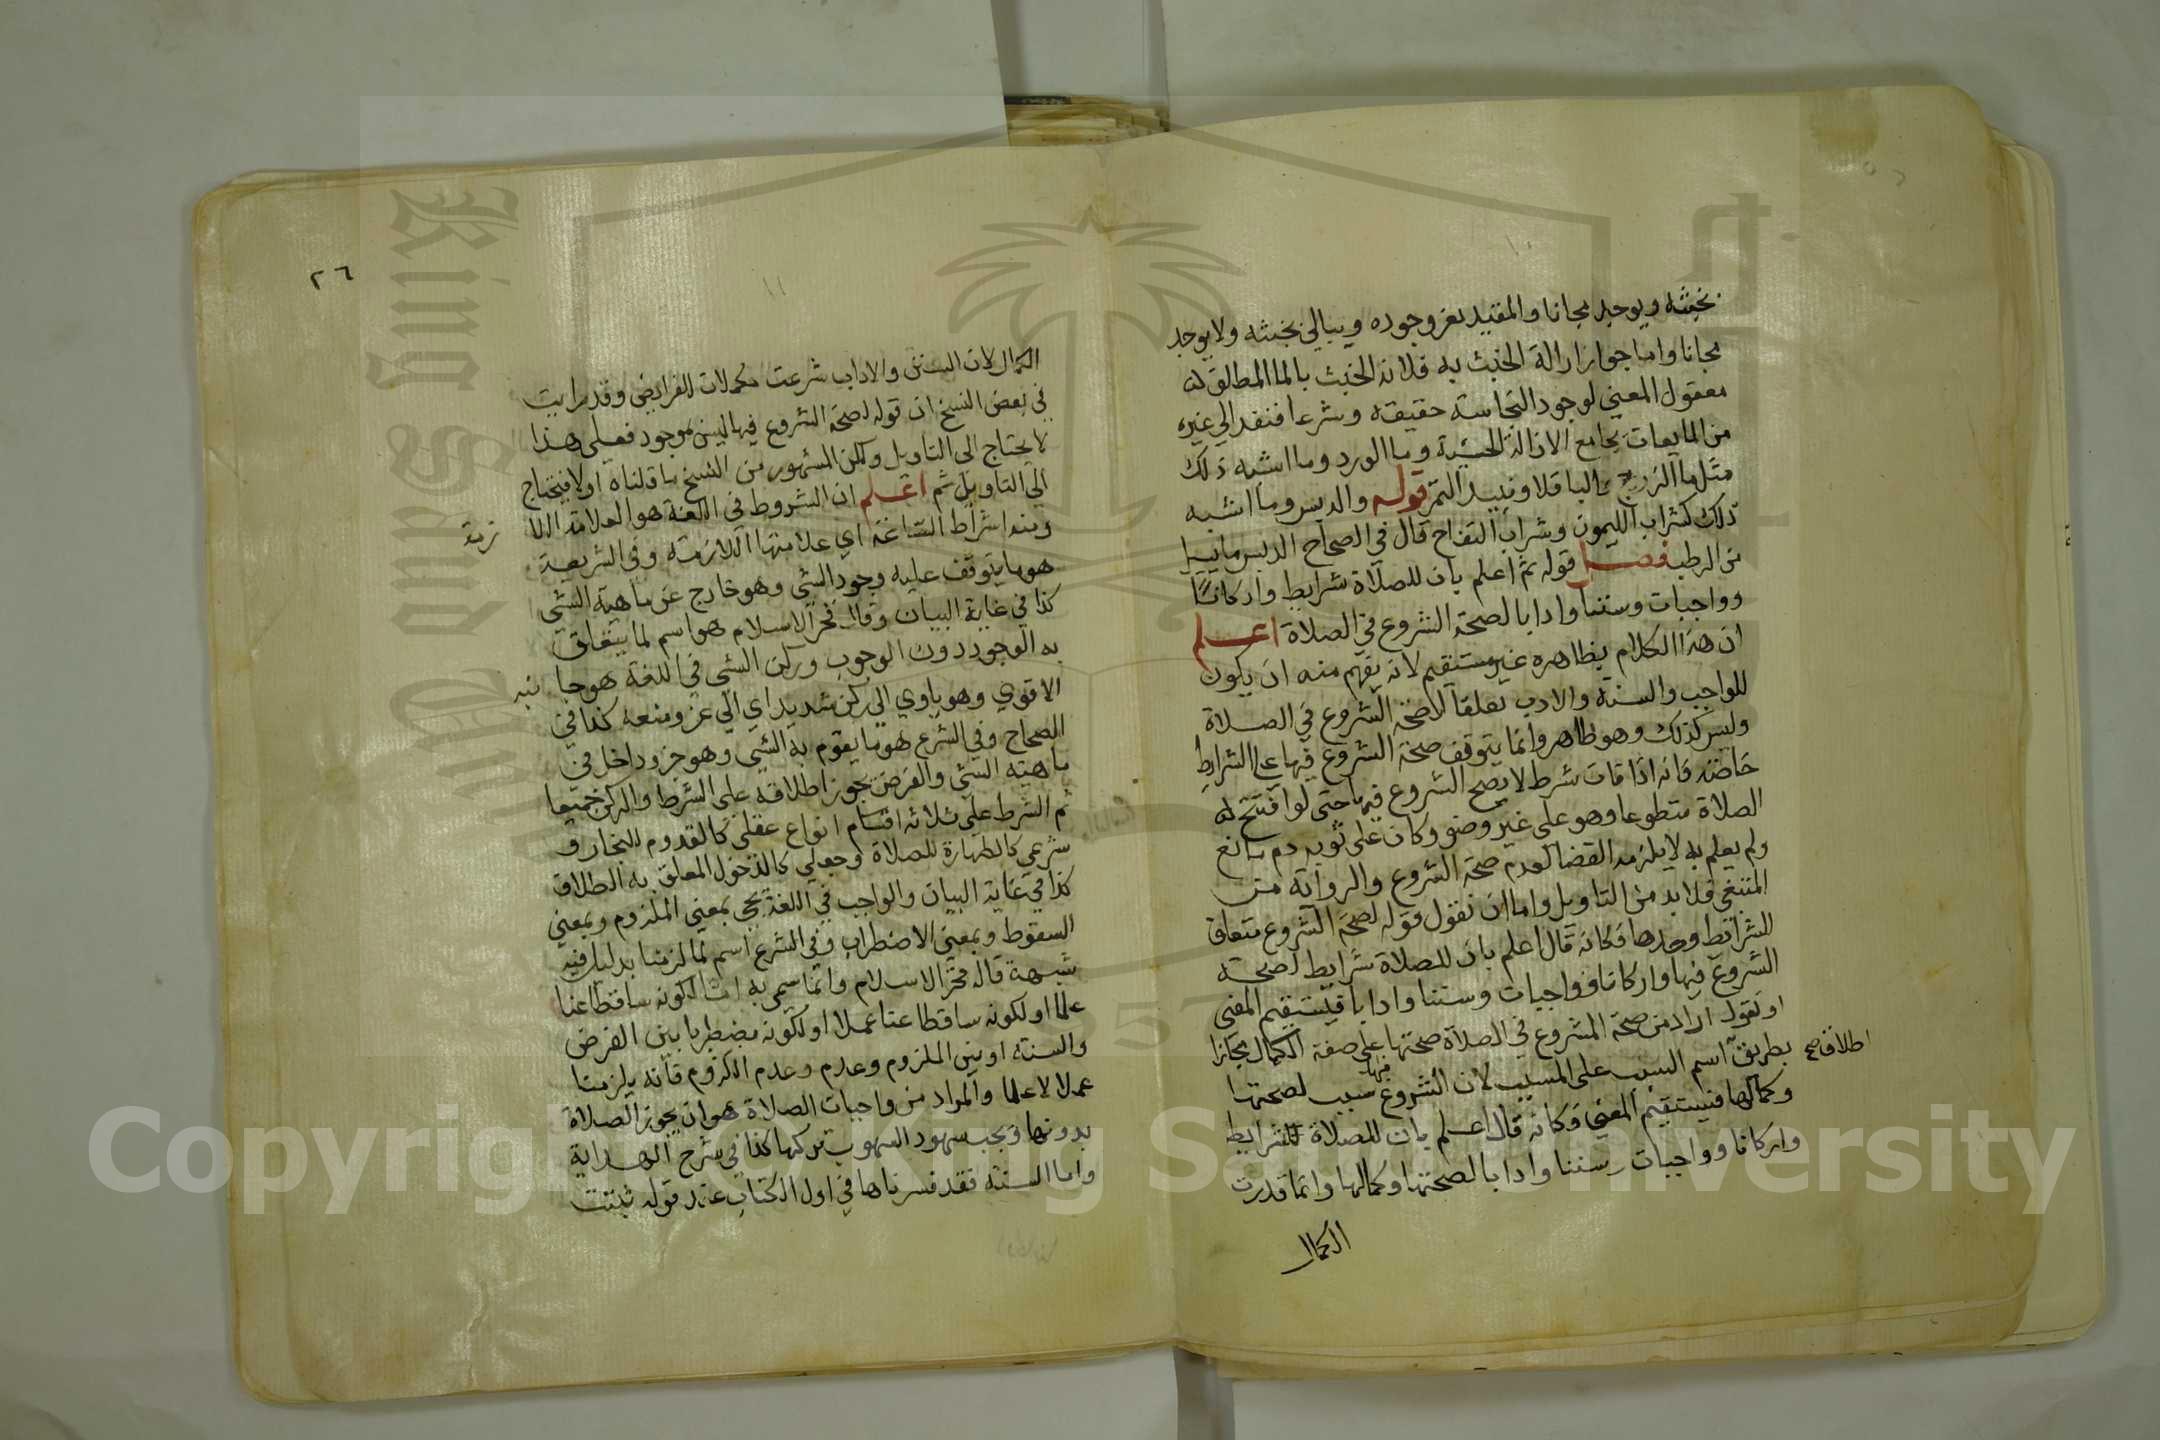 بخبثه ويوجد مجانا والمقيد يعز وجوده ويبالي بخبثه ولا يوجد
مجانا واما جواز ازالة الخبث به فلانه الخبث بالماء المطلق لانه
معقول المعني لوجود النجاسة حقيقة وشرعا فتعدى الي غيره
من المايعات بجامع الازالة الحسية وما الورد وما اشبه ذلك
مثل ما الزردج والباقلا ونبيد التمر قوله والدبس وما اشبه
ذلك كشراب الليمون وشراب التفاح قال في الصحاح الدبس ما يسيل
من الرطب فصل قوله ثم اعلم بان للصلاة شرايط واركانا
وواجبات وسننا وادابا لصحة الشروع في الصلاة اعلم
ان هذا الكلام بظاهره غير مستقيم لانه يفهم منه ان يكون
للواجب والسنة والادب تعلقا لاصحة الشروع في الصلاة
وليس كذلك وهو ظاهر وانما يتوقف صحة الشروع فيها علي الشرايط
خاصة فانه اذا فات شرط لا يصح الشروع فيها حتى لو افتتح له
الصلاة متطوعا وهو علي غير وضو وكان على ثوبه دم مانع
ولم يعلم به لا يلزمه القضا لعدم صحة الشروع والرواية من
المنتغي فلا بد من التاويل واما ان نقول قوله لصحة الشروع متعلق
للشرائط وحدها فكانه قال اعلم بان للصلاة شرايط لصحة
الشروع فيها واركانا وواجبات وسننا وادابا فيستقيم المعني
او نقول اراد من صحة المشروع في الصلاة صحتها علي صفة الكمال مجازا
بطريق اسم السبب على المسبب لان الشروع فيها سبب لصحتها
اطلاق صح
وكمالها فيستقيم المعني فكانه قال اعلم بان للصلاة للشرايط
واركانا وواجبات وسننا وادابا لصحتها وكمالها وانما قدرت
الكمال
٢٦
الكمال لان السنن والاداب شرعت مكملات للفرايض وقد رايت
في بعض النسخ ان قوله لصحة الشروع فيها ليس بموجود فعلي هذا
لا يحتاج الى التاويل ولكن المشهور من النسخ ما قلناه اولا فيحتاج
الي التاويل ثم اعلم ان الشروط في اللغة هو العلامة اللا
زمة
ومنه اشراط الساعة اي علامتها اللازمة وفي الشريعة
هو ما يتوقف عليه وجود الشي وهو خارج عن ماهية الشي
كذا في غاية البيان وقال فخر الاسلام هو اسم لما يتعلق
به الوجود دون الوجوب وركن الشي في اللغة هو جا
نبه
الاقوي وهو ياوي الي ركن شديد اي الي عز ومنعه كذا في
الصحاح وفي الشرع هو ما يقوم به الشي وهو جزو داخل في
ماهية الشي والفرض يجوز اطلاقه على الشرط والركن جميعا
ثم الشرط علي ثلاثة اقسام انواع عقلي كالقدوم للنجار و
شرعي كالطهارة للصلاة وجعلي كالدخول المعلق به الطلاق
كذا في غاية البيان والواجب في اللغة يجي بمعني الملزوم وبمعني
السقوط وبمعني الاضطراب وفي الشرع اسم لما لزمنا بدليل فيه
شبهة قاله فخر الاسلام وانما سمي به اما لكونه ساقطا عنا
علما او لكونه ساقطا عنا عملا او لكونه مضطربا بين الفرض
والسنة او بين الملزوم وعدم وعدم اللزوم فانه يلزمنا
عملا لا علما والمراد من واجبات الصلاة هو ان يجوز الصلاة
بدونها ويجب سهود السهو بتركها كذا في شرح الهداية
واما السنة فقد فسرناها في اول الكتاب عند قوله ثبتت
King Saud University
Copyright © King Saud University